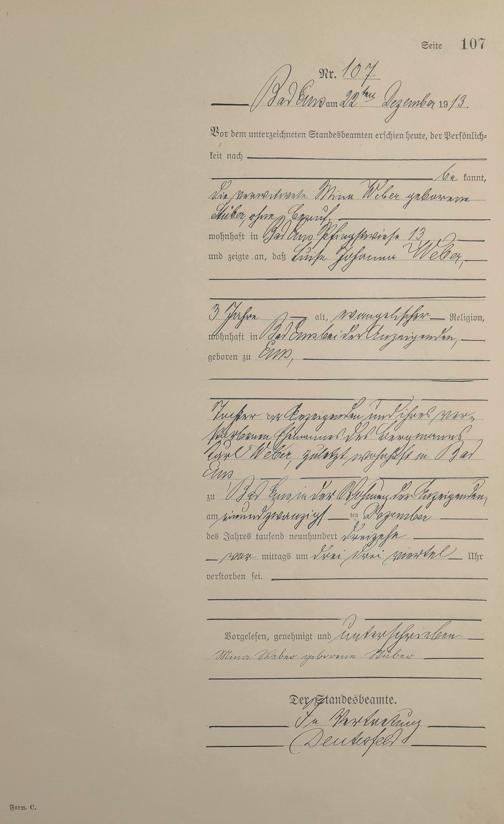 Seite 107
Nr. 107
Bad Ems am 22ten Dezember 1913.
Vor dem unterzeichneten Standesbeamten erschien heute, der Persönlich-
keit nach
be kannt,
die verwitwete Mina Weber geborene
ohne Beruf,
wohnhaft in Bad Ems Pfingstwiese 13
und zeigte an, daß Luise Johanna Weber,
3 Jahre alt, evangelischer Religion,
wohnhaft in Bad Ems bei der Anzeigenden,
geboren zu Ems,
Tochter der Anzeigenden und ihres ver-
storbenen Ehemannes des Bergmannes
Karl Weber, zuletzt wohnhaft in Bad
Ems
zu Bad Ems in der Wohnung der Anzeigenden,
am einundzwanzigsten Dezember
des Jahres tausend neunhundert dreizehn
vor mittags um drei drei viertel Uhr
verstorben sei.
Vorgelesen, genehmigt und unterschrieben
Mina Weber geborene
Der Standesbeamte.
In Vertretung
Form. C.